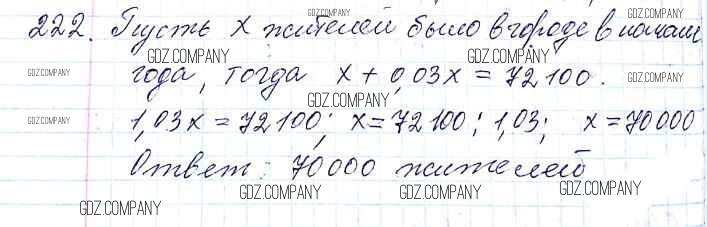 222. Пусть x жителей было в городе в начале
года, тогда x + 0,03x = 72 100.
1,03x = 72 100; x = 72 100 : 1,03; x = 70 000
Ответ: 70 000 жителей
GDZ.COMPANY
GDZ.COMPANY
GDZ.COMPANY
GDZ.COMPANY
GDZ.COMPANY
GDZ.COMPANY
GDZ.COMPANY
GDZ.COMPANY
GDZ.COMPANY
GDZ.COMPANY
GDZ.COMPANY
GDZ.COMPANY